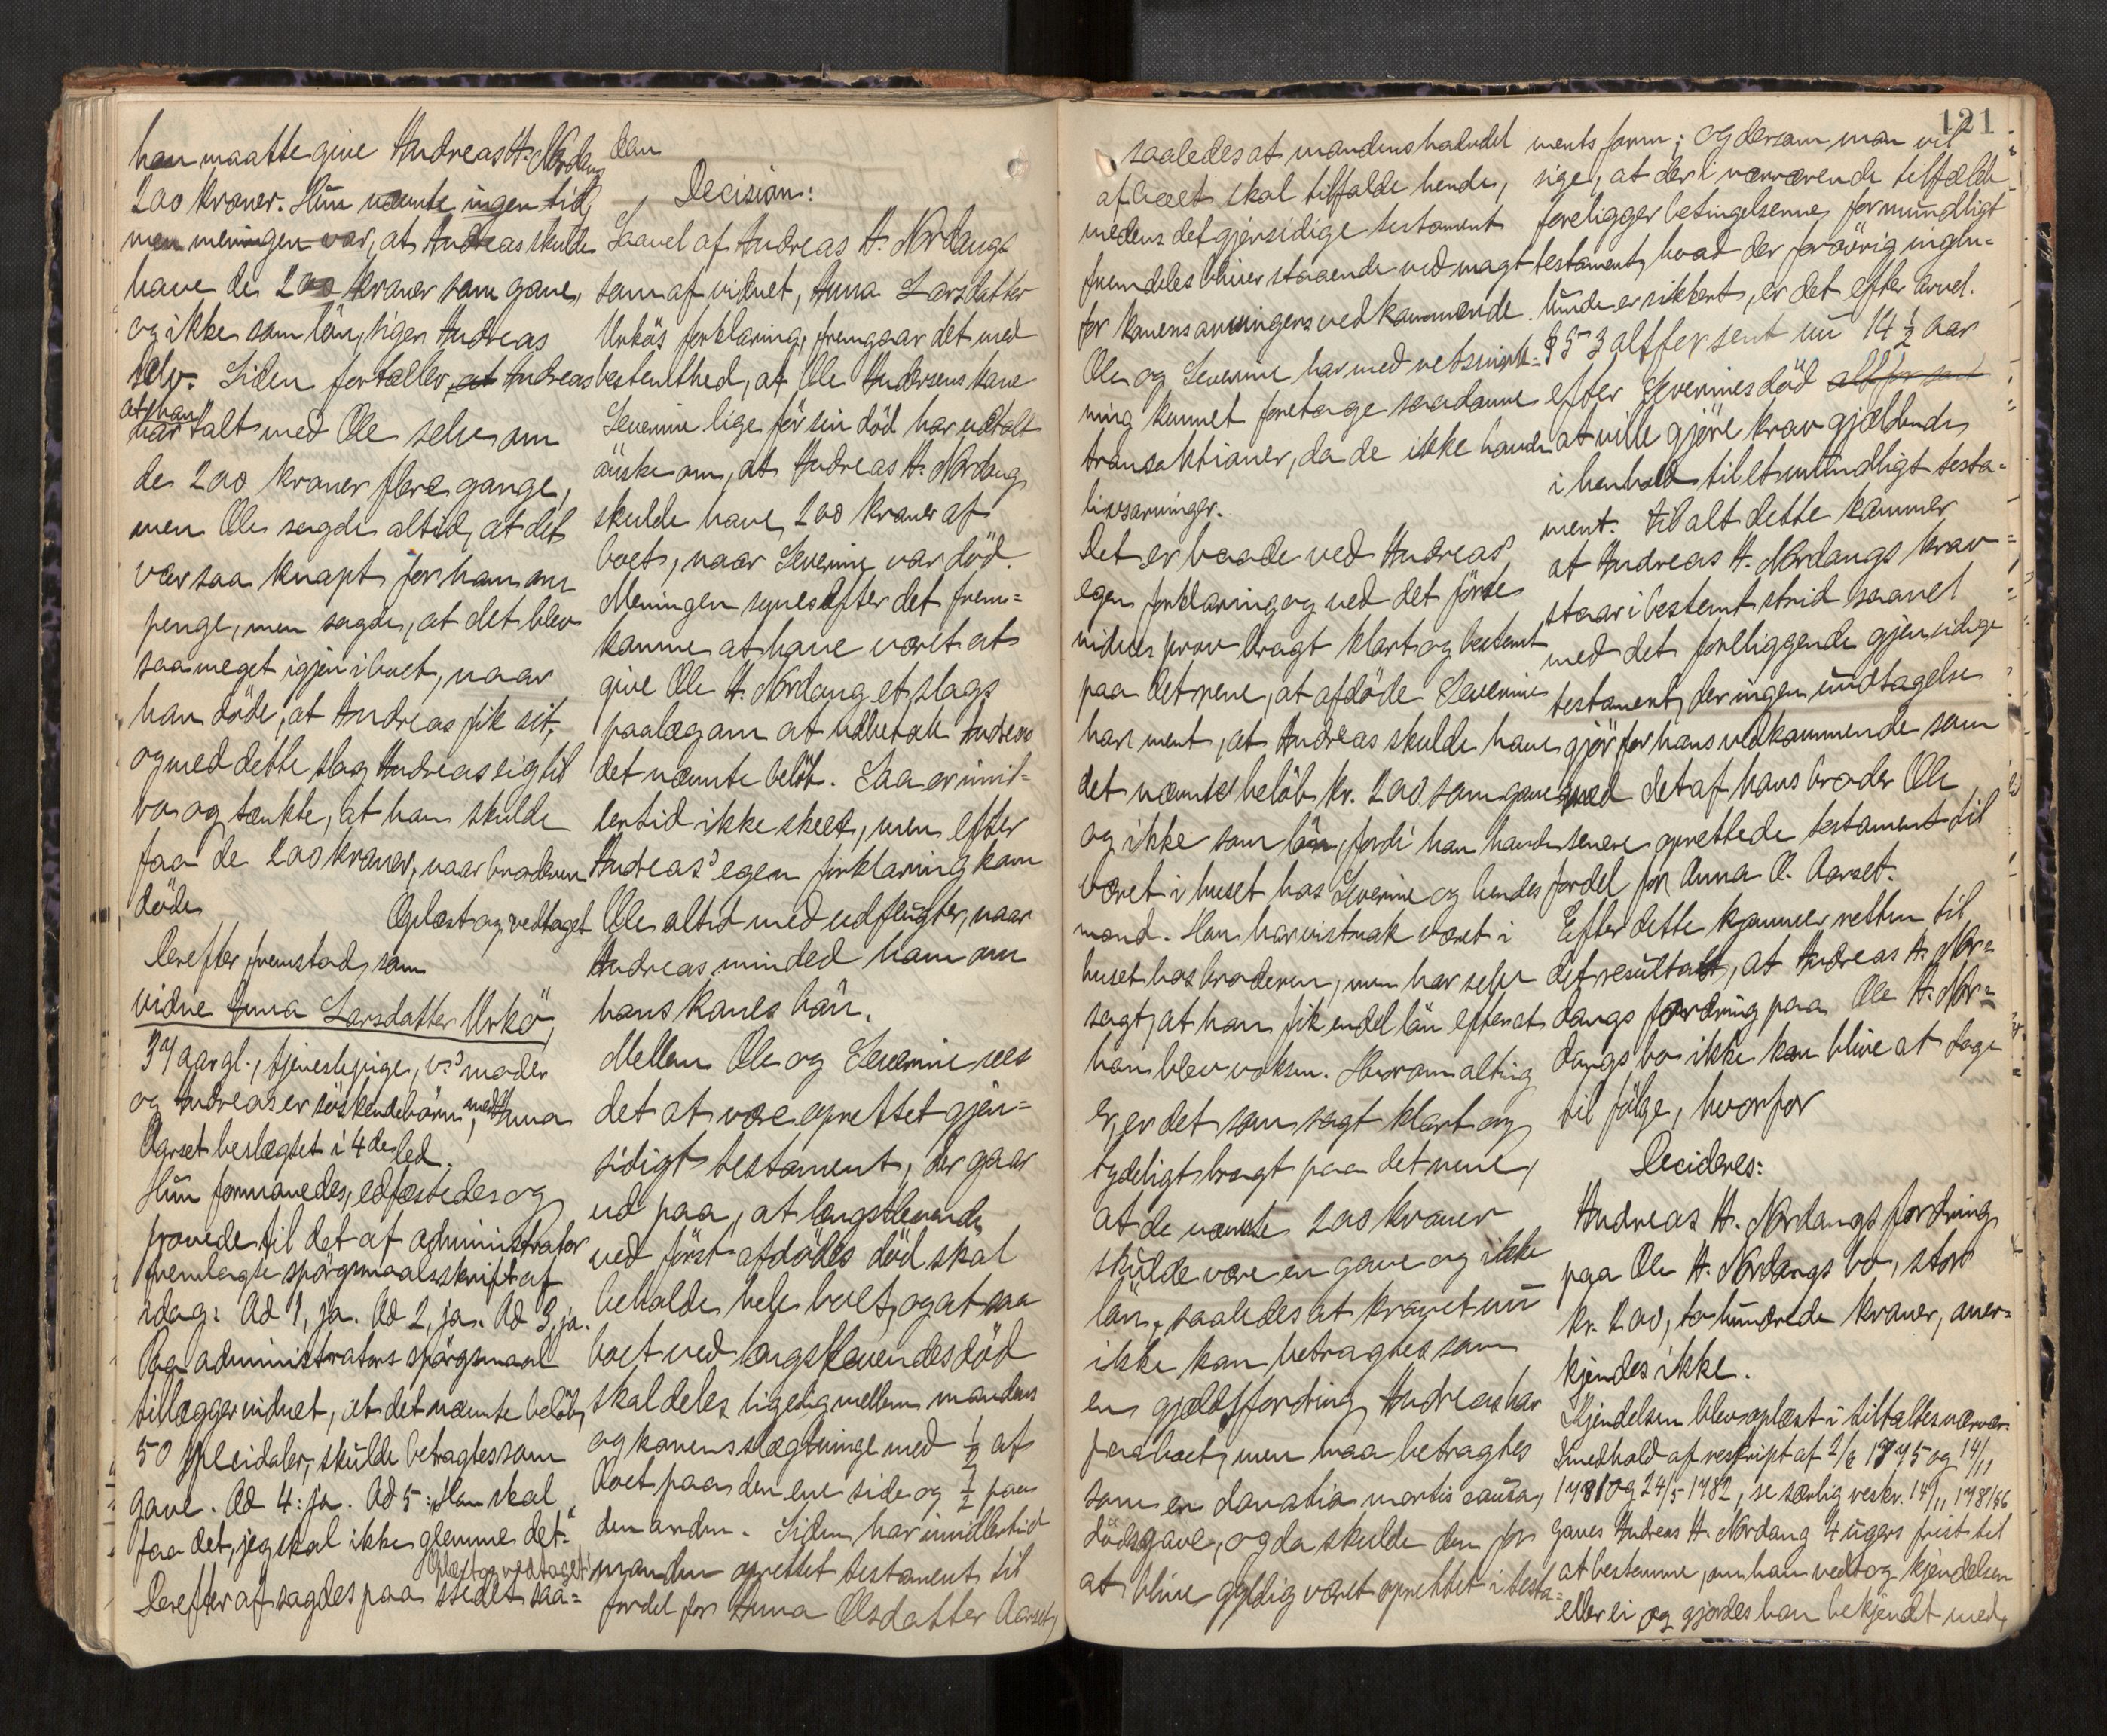 han maatte give Andreas H. Nordang
200 kroner. Hun nævnte ingen tid,
men meningen var, at Andreas skulde
have de 200 kroner som gave,
og ikke som lön, siger Andreas
selv. Siden fortæller, at Andreas
at han
har talt med Ole selv om
de 200 kroner flere gange,
men Ole sagde altid, at det
var saa knapt for ham om
penge, men sagde, at det blev
saa meget igjen i boet, naar
han döde, at Andreas fik sit,
og med dette slog Andreas sig til
ro og tænkte, at han skulde
faa de 200 kroner, naar broderen
döde.
Oplæst og vedtaget
Derefter fremstod som
vidne Anna Larsdatter Urkö,
37 aar gl., tjenestepige, v's moder
og Andreas er söskendebörn, med Anna
Aarset beslægtet i 4de led.
Hun formanedes, edfæstedes og
provede til det af administrator
fremlagte spörgsmaalsskrift af
idag: Ad 1, ja. Ad 2, ja. Ad 3, ja.
Paa administrators spörgsmaal
tillægger vidnet, at det nævnte belöb,
50 speidaler, skulde betragtes som
gave. Ad 4: ja. Ad 5: "Han skal
faa det, jeg skal ikke glemme det."
Oplæst og vedtaget
Derefter afsagdes paa stedet saa=
dan
Decision:
Saavel af Andreas H. Nordangs
som af vidnet, Anna Larsdatter
Urkös forklaring, fremgaar det med
bestemthed, at Ole Andersens kone
Severine lige för sin död har udtalt
önske om, at Andreas H. Nordang
skulde have 200 kroner af
boet, naar Severine var död.
Meningen synes efter det frem=
komne at have været at
give Ole H. Nordang et slags
paalæg om at udbetale Andreas
det nævnte belöb. Saa er imid=
lertid ikke skeet, men efter
Andreas' egen forklaring kom
Ole altid med udflugter, naar
Andreas minded ham om
hans kones bön.
Mellem Ole og Severine sees
det at være oprettet gjen=
sidigt testament, der gaar
ud paa, at længstlevende
ved först afdödes död skal
beholde hele boet, og at saa
boet ved længstlevendes död
skal deles ligelig mellem mandens
og konens slægtninge med ½ af
boet paa den ene side og ½ paa
den anden. Siden har imidlertid
manden oprettet testament til
fordel for Anna Olsdatter Aarset,
121
saaledes at mandens halvdel
af boet skal tilfalde hende,
medens det gjensidige testament
fremdeles bliver staaende ved magt
for konens arvingers vedkommende.
Ole og Severine har med retsvirk=
ning kunnet foretage saadanne
transaktioner, da de ikke havde
livsarvinger.
Det er baade ved Andreas'
egen forklaring og ved det förte
vidnes prov bragt klart og bestemt
paa det rene, at afdöde Severine
har ment, at Andreas skulde have
det nævnte belöb kr. 200 som gave
og ikke som lön, fordi han havde
været i huset hos Severine og hendes
mand. Han har vistnok været i
huset hos broderen, men har selv
sagt, at han fik endel lön efter at
han blev voksen. Hvorom alting
er, er det som sagt klart og
tydeligt bragt paa det rene,
at de nævnte 200 kroner
skulde være en gave og ikke
lön, saaledes at kravet nu
ikke kan betragtes som
en gjældsfordring Andreas har
paa boet, men maa betragtes
som en donatio mortis causa,
dödsgave, og da skulde den for
at blive gyldig været oprettet i testa=
ments form; og dersom man vil
sige, at der i nærværende tilfælde
foreligger betingelserne for mundligt
testament, hvad der forövrig ingen=
lunde er sikkert, er det efter arvel.
§ 53 altfor sent nu 14 ½ aar
efter Severines död altfor sent
at ville gjöre krav gjældende
i henhold til et mundligt testa=
ment. Til alt dette kommer
at Andreas H. Nordangs krav
staar i bestemt strid saavel
med det foreliggende gjensidige
testament, der ingen undtagelse
gjör for hans vedkommende som
med det af hans broder Ole
senere oprettede testament til
fordel for Anna O. Aarset.
Efter dette kommer retten til
det resultat, at Andreas H. Nor=
dangs fordring paa Ole H. Nor=
dangs bo ikke kan blive at tage
til fölge, hvorfor
Decideres:
Andreas H. Nordangs fordring
paa Ole H. Nordangs bo, stor
kr. 200, to hundrede kroner, aner=
kjendes ikke.
Kjendelsen blev oplæst i tiltaltes nærvær.
I medhold af reskript af 2/6 1775 og 14/11
1781 og 24/5 1782, se særlig reskr. 14/11 1781 §6
gaves Andreas H. Nordang 4 ugers frist til
at bestemme, om han vedtog kjendelsen
eller ei og gjordes han bekjendt med,